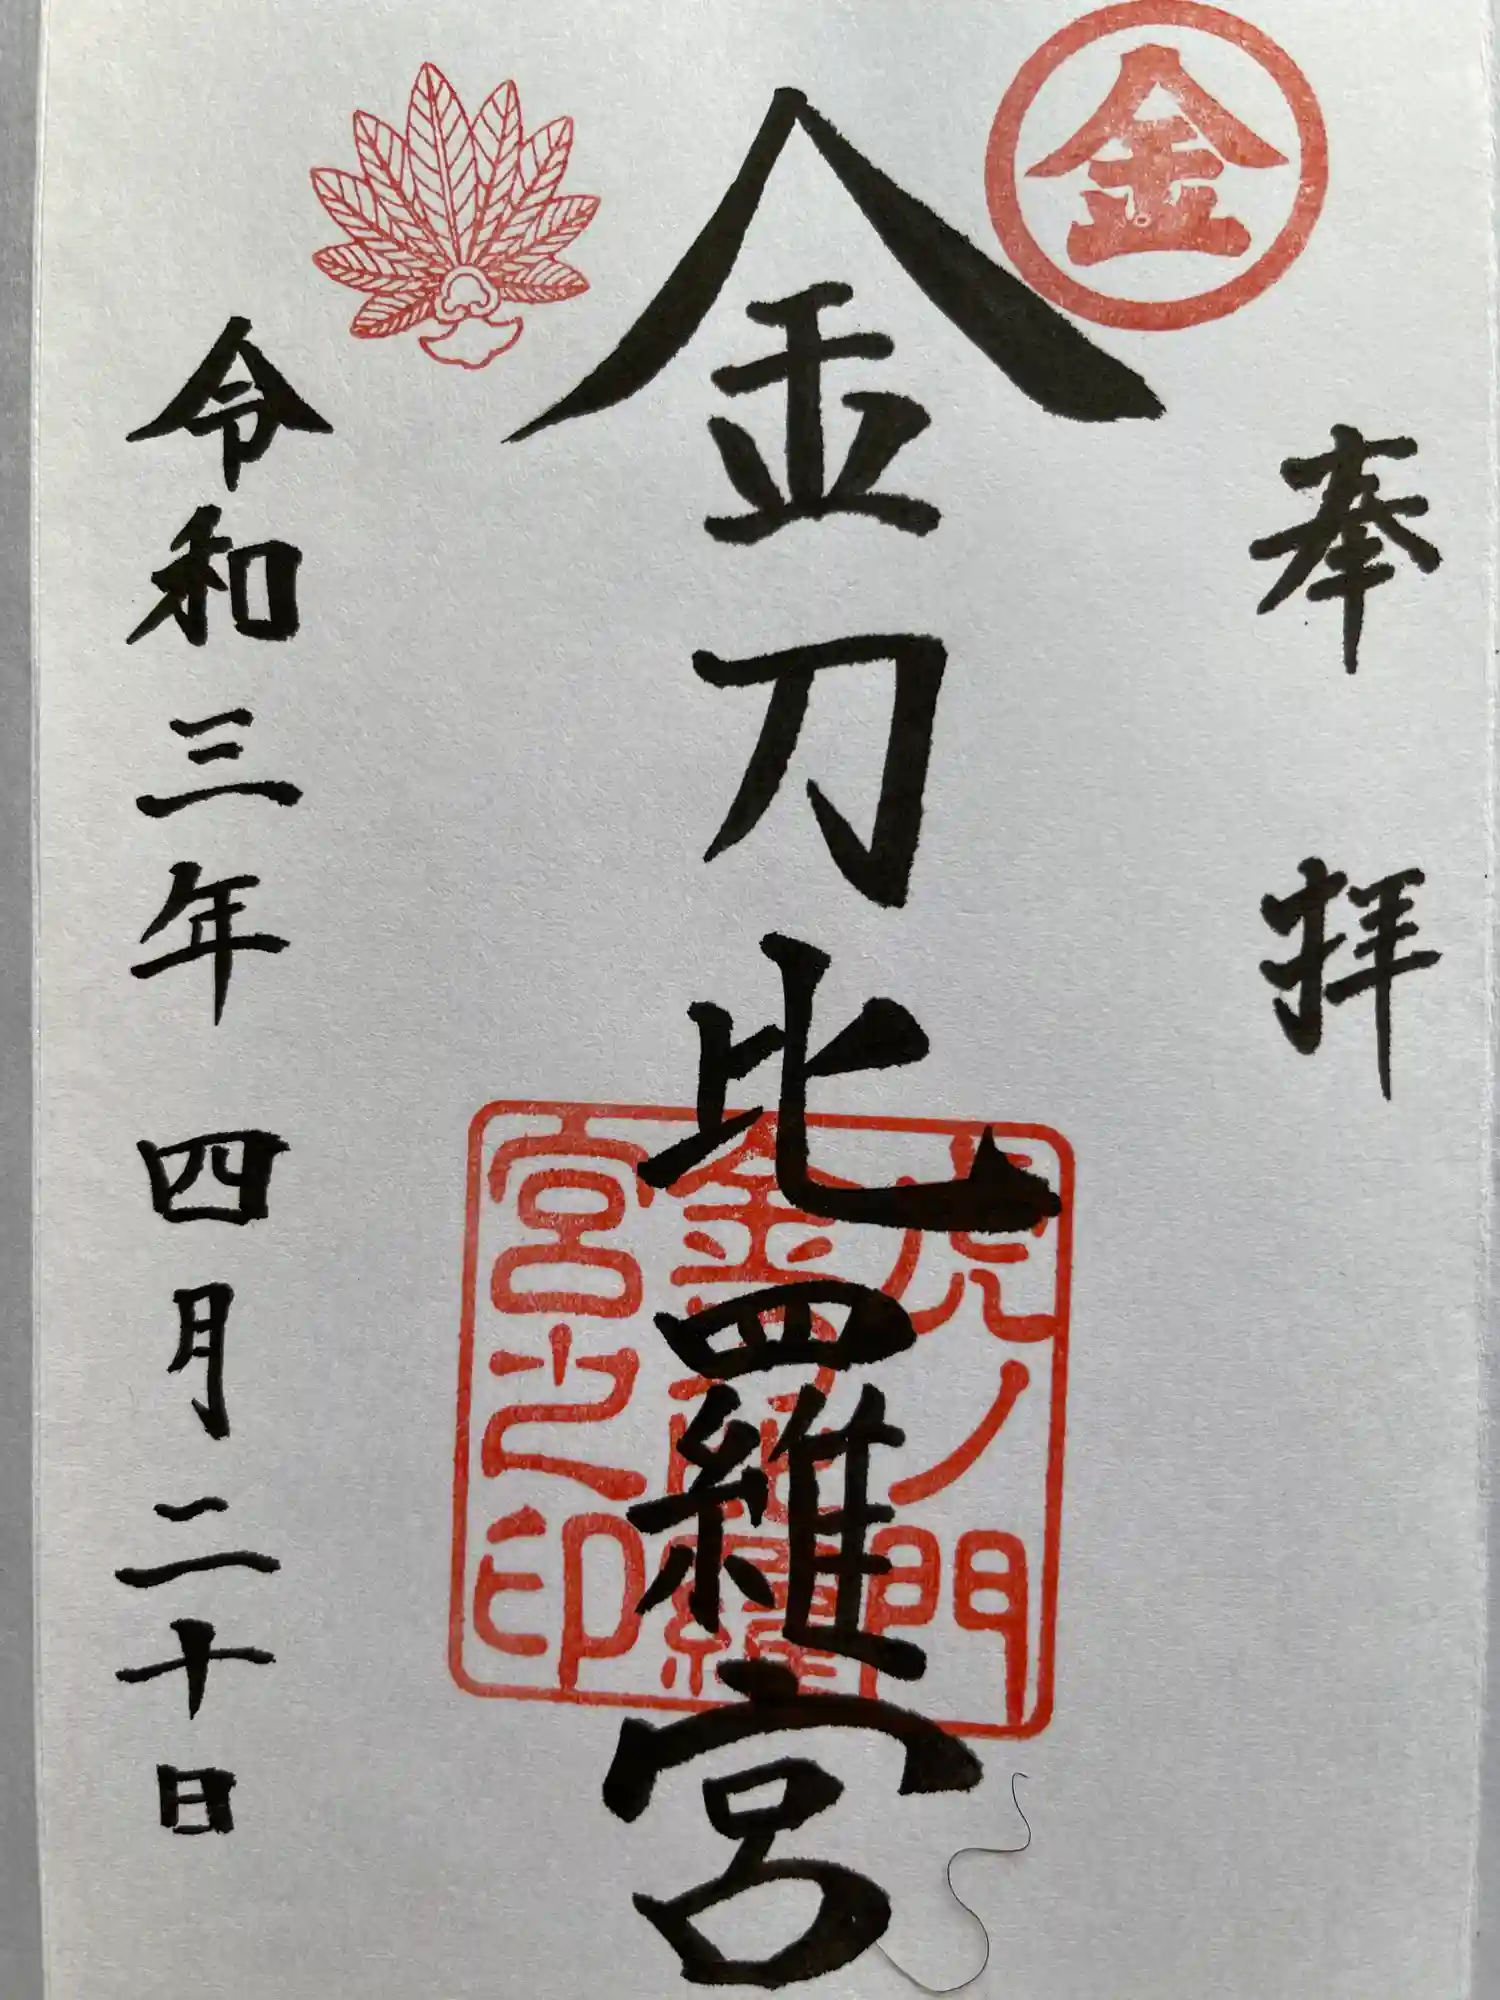 金
奉拝
金刀比羅宮
虎ノ門
金刀比羅
宮之印
令和三年 四月二十日